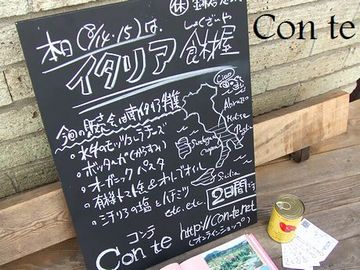 Con te
本日(8/14・15)は、
イタリア食材屋
今回の販売会は南イタリア特集
・水牛のモッツァレラチーズ
・ボッタルガ(からすみ)
・オーガニックパスタ
・有機トマト缶&オリーブオイル
・シチリアの塩とハチミツ
etc. etc.
2日間
Ciao
Abruzzo
Molise
Puglia
Sardegna
Sicilia
コンテ
Con te http://con-te.net
(オンラインショップ)